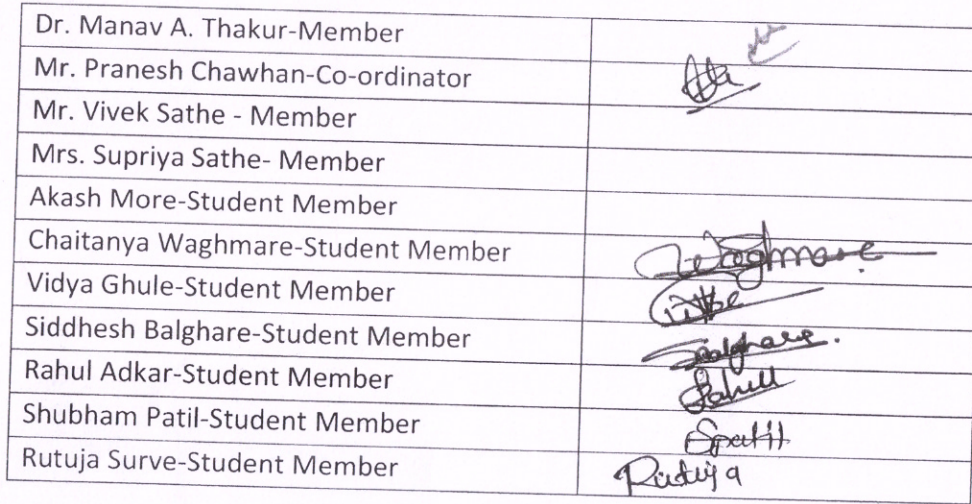 Dr. Manav A. Thakur-Member
Mr. Pranesh Chawhan-Co-ordinator
Mr. Vivek Sathe - Member
Mrs. Supriya Sathe- Member
Akash More-Student Member
Chaitanya Waghmare-Student Member Waghmare
Vidya Ghule-Student Member
Siddhesh Balghare-Student Member Sbalghare.
Rahul Adkar-Student Member Rahull
Shubham Patil-Student Member Spatil
Rutuja Surve-Student Member Rutuja